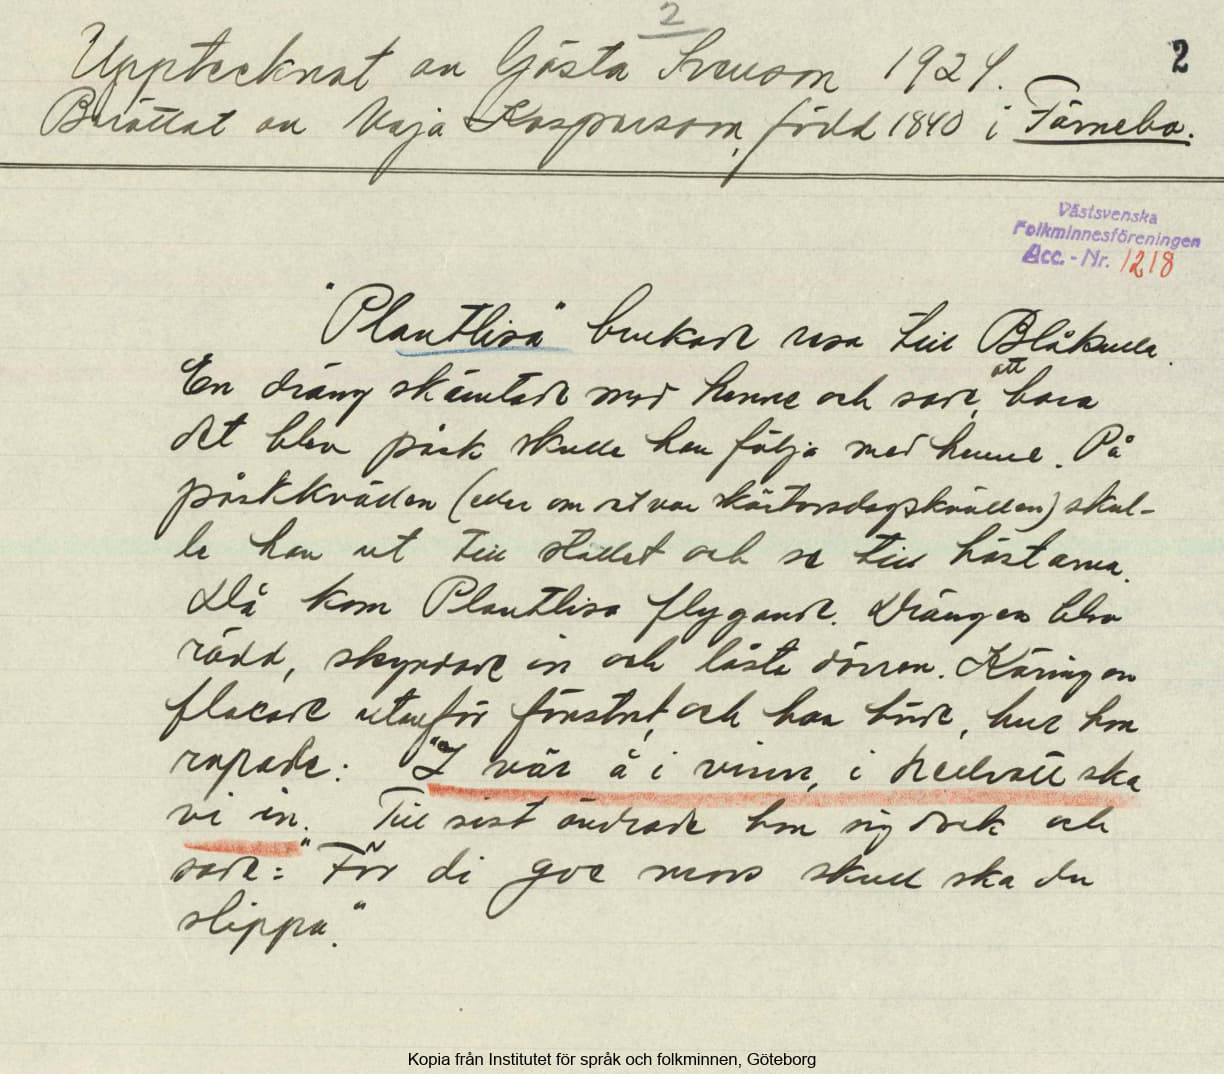 2
Upptecknat av Gösta Svenson 1924.
2
Berättat av Maja Kasparsson, född 1840 i Färnebo.
Västsvenska
Folkminnesföreningen
Acc. - Nr. 1218
"Plantlisa" brukade resa till Blåkulla.
En dräng skämtade med henne och sade, att bara
det blev påsk skulle han följa med henne. På
påskkvällen (eller om det var skärtorsdagskvällen) skul-
le han ut till stallet och se till hästarna.
Då kom Plantlisa flygande. Drängen blev
rädd, skyndade in och låste dörren. Käringen
flaxade utanför fönstret, och han hörde, hur hon
ropade: "I vär å i vinn, i hellväte ska
vi in. Till sist ändrade hon sig dock och
sade: "För di goe mors skull ska du
slippa."
Kopia från Institutet för språk och folkminnen, Göteborg